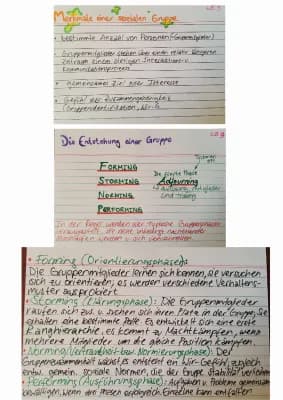 Merkmale einer sozialen Gruppe
• bestimmte Anzahl von Personen (Gruppenmitglieder)
• Gruppenmitglieder stehen über einen relativ längeren
Zeitraum einem stetigen Interaktions- u.
Kommunikationsprozess
• gemeinsames Ziel oder Interesse
• Gefühl der Zusammengehörigkeit
(Gruppenidentifikation,
Die Entstehung einer Gruppe
FORMING
STORMING
NORMING
PERFORMING
Die fünfte Phase
Adjourning
In der Regel werden vier typische Gruppenphasen
• Forming (Orientierungsphase):
Die Gruppenmitglieder lernen sich kennen, sie versuchen
sich zu orientieren, es werden verschiedene Verhaltens-
muster ausprobiert
• Storming (Klärungsphase): Die Gruppenmitglieder
raufen sich aus u. suchen sich ihren Platz in der Gruppe, Sie
erhalten eine bestimmte Rolle. Es entwickelt sich eine erste
Ranghierarchie, es kommt zu Machtkämpfen, wenn
mehrere Mitglieder um die gleiche Position kämpfen
• Norming (Vertrautheit- bzw. Normierungsphase): Der
Gruppenzusammenhalt wächst, es entsteht ein Wir-Gefühl, zugleich
entw. gemein. soziale Normen, die der Gruppe Stabilität verleihen
• Performing (Ausführungsphase): Aufgaben u. Probleme gemeinsam
bewältigen, wenn der einzelne sich entfalten